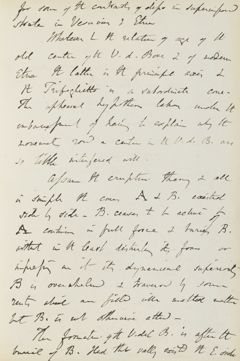 for some of the contrasts of dips in superimposed
strata in Vesuvius & Etna
Whatever be the relative age of the
old centre of the V. d. Bove & of modern
Etna the latter is the principal axis &
the Trifoglietto is a subordinate cone
The upheaval hypothesis labors under the
embarrassment of having to explain why the
movement round a centre in the V. d. B. was
so little interfered with
Assume the eruption theory & all
is simple the cones A & B. existed
side by side - B. ceases to be active
A continues in full force & buries B.
without in the least disturbing its form or
impressing on it its dynamical superiority
B is overwhelmed & traversed by some
rents which are filled with melted matter
but B. is not otherwise altered -
The formation of the Val del B. is after the
burial of B. Had this valley existed the